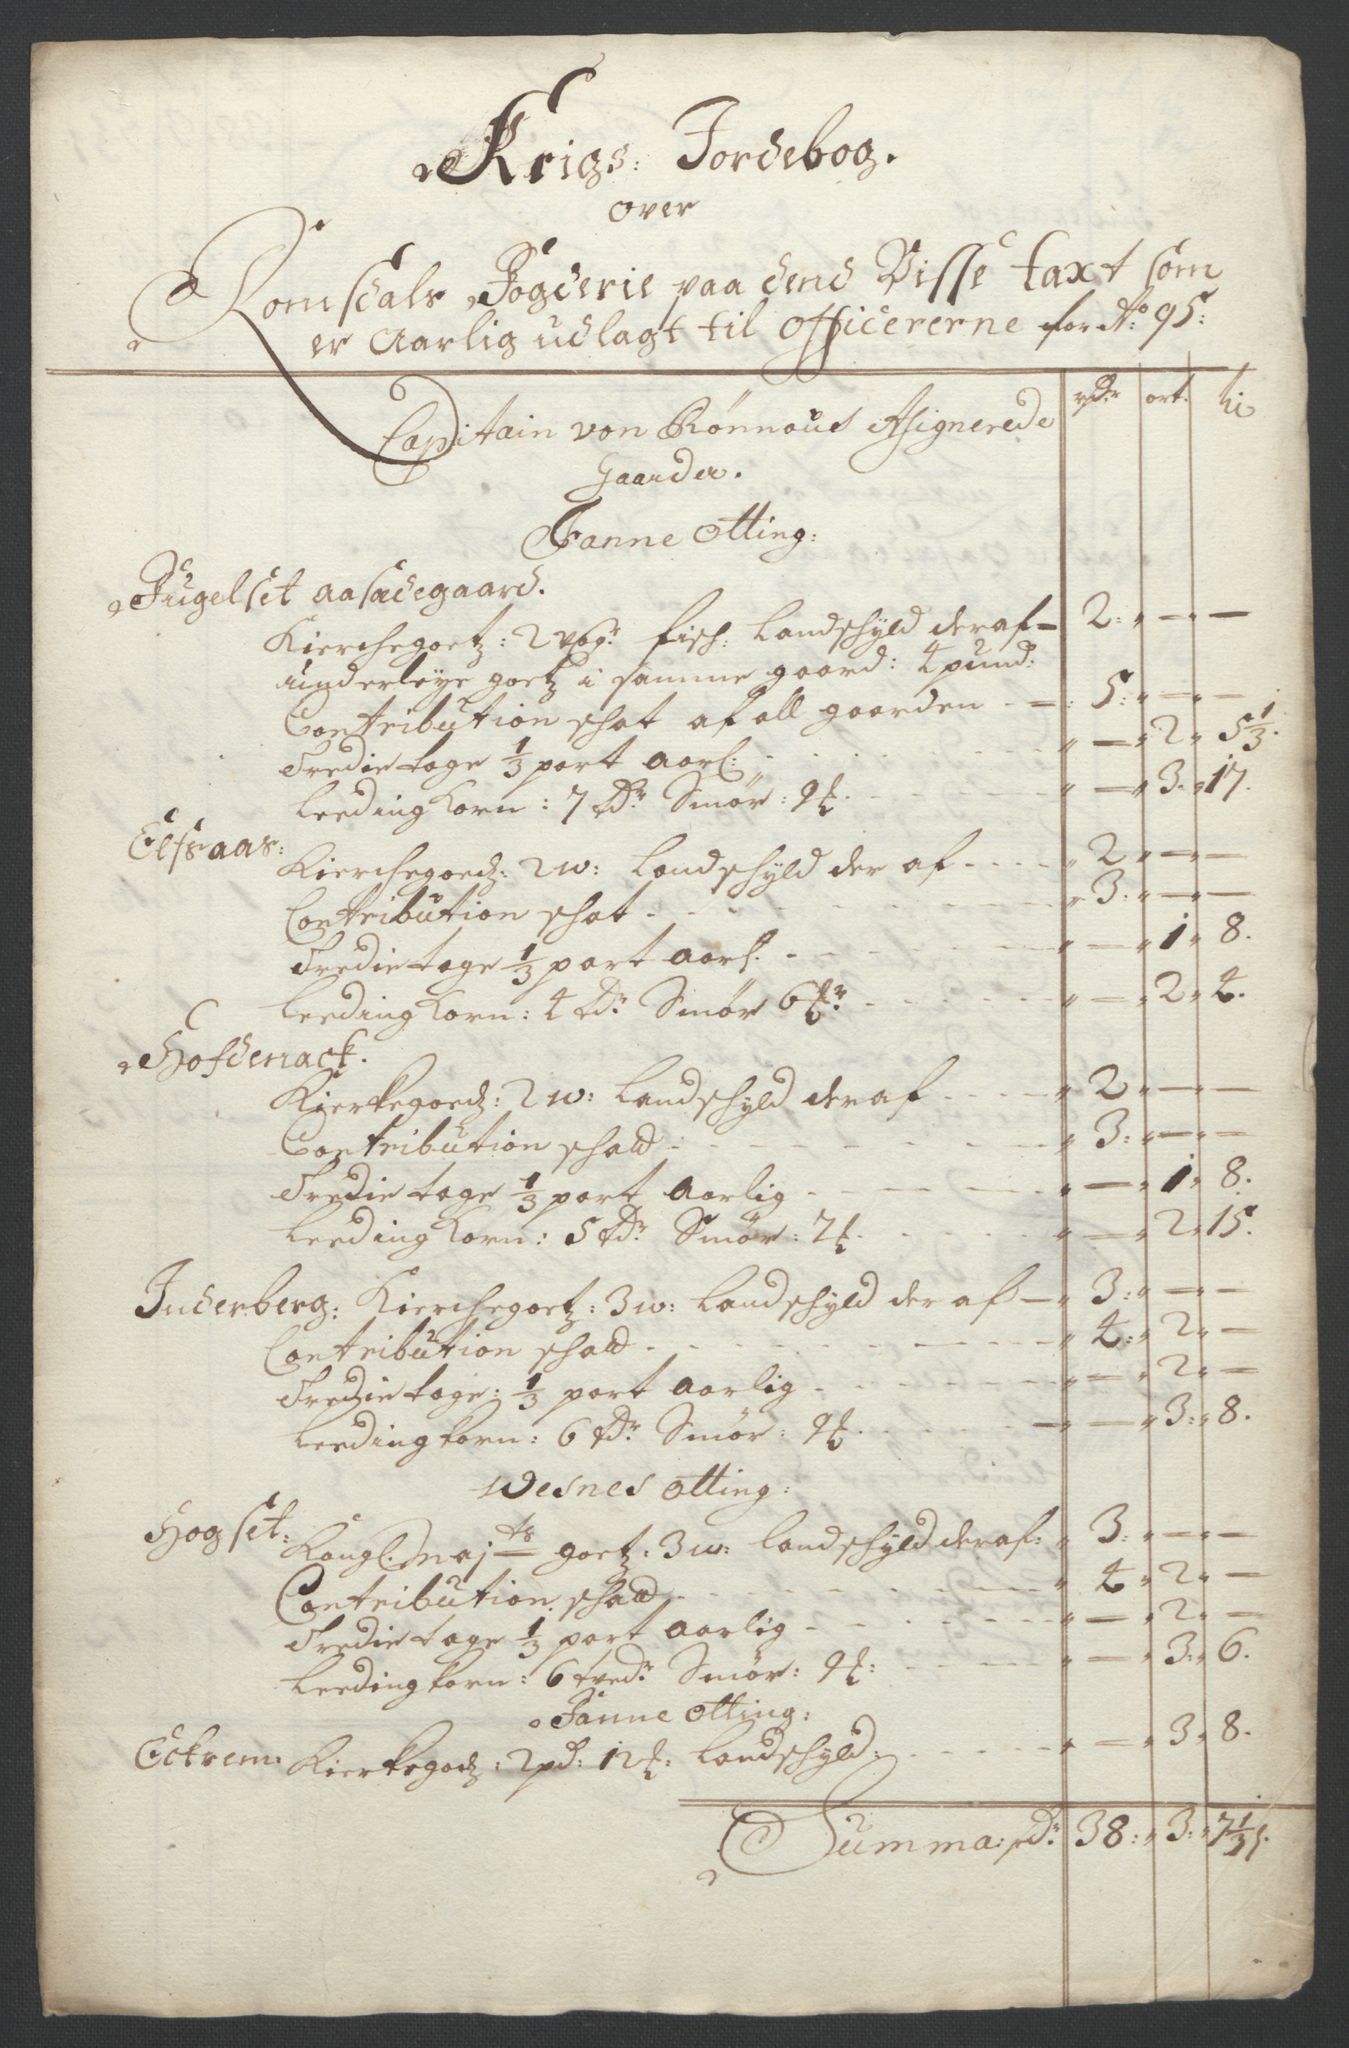 Krigs: Jordebog.
over
Romsdals Fogderie paa dend Visse taxt som
er Aarlig udlagt til Officererne for Ao 95:
rdr ort. ß
Capitain von Rønnous Asignerede
gaarder.
Fanne Otting:
Fugelset aasædegaard.
Kierchegoetz: 2 vogr fisch: Landschyld deraf 2: — —
underløye goetz i samme gaard: 4 pund:
Contribution schat af all gaarden 5: — —
Tredie tage 1/3 part aarl: — 2 5 1/3.
Leeding Korn: 7 Td:r Smør: 9 ℔. — 3. 17.
Elfsaas:
Kierchegoedz: 2 w: Landschyld der af 2 — —
Contribution schat 3: — —
Tredie tage 1/3 part aarl. — 1 8.
Leeding Korn: 4 Td:r Smør 6 ℔r — 2 4.
Hofdenack.
Kierkegoedz: 2 w: Landschyld deraf 2 — —
Contribution schatt 3: — —
Tredie tage 1/3 part aarlig — 1 8.
Leeding Korn: 5 Td:r Smør: 7 ℔. — 2 15.
Inderberg: Kierchegoetz: 3 w: Landschyld der af 3: — —
Contribution schatt 4: 2 —
Tredie tage: 1/3 part aarlig — 2 —
Leeding korn: 6 Td:r Smør: 9 ℔. — 3: 8.
Wesnes Otting:
Hogset:
Kongl. Majts goetz: 3 w: Landschyld deraf: 3: — —
Contribution schatt 4 2 —
Tredie tage 1/3 part aarlig — 2 —
Leeding korn: 6 tvedr Smør: 9 ℔: — 3: 6.
Fanne Otting:
Eckrem: Kierkegodz: 2 pd: 12 ℔: Landschyld: — 3 8.
Summa: rdr 38: 3: 7 1/3 ß.